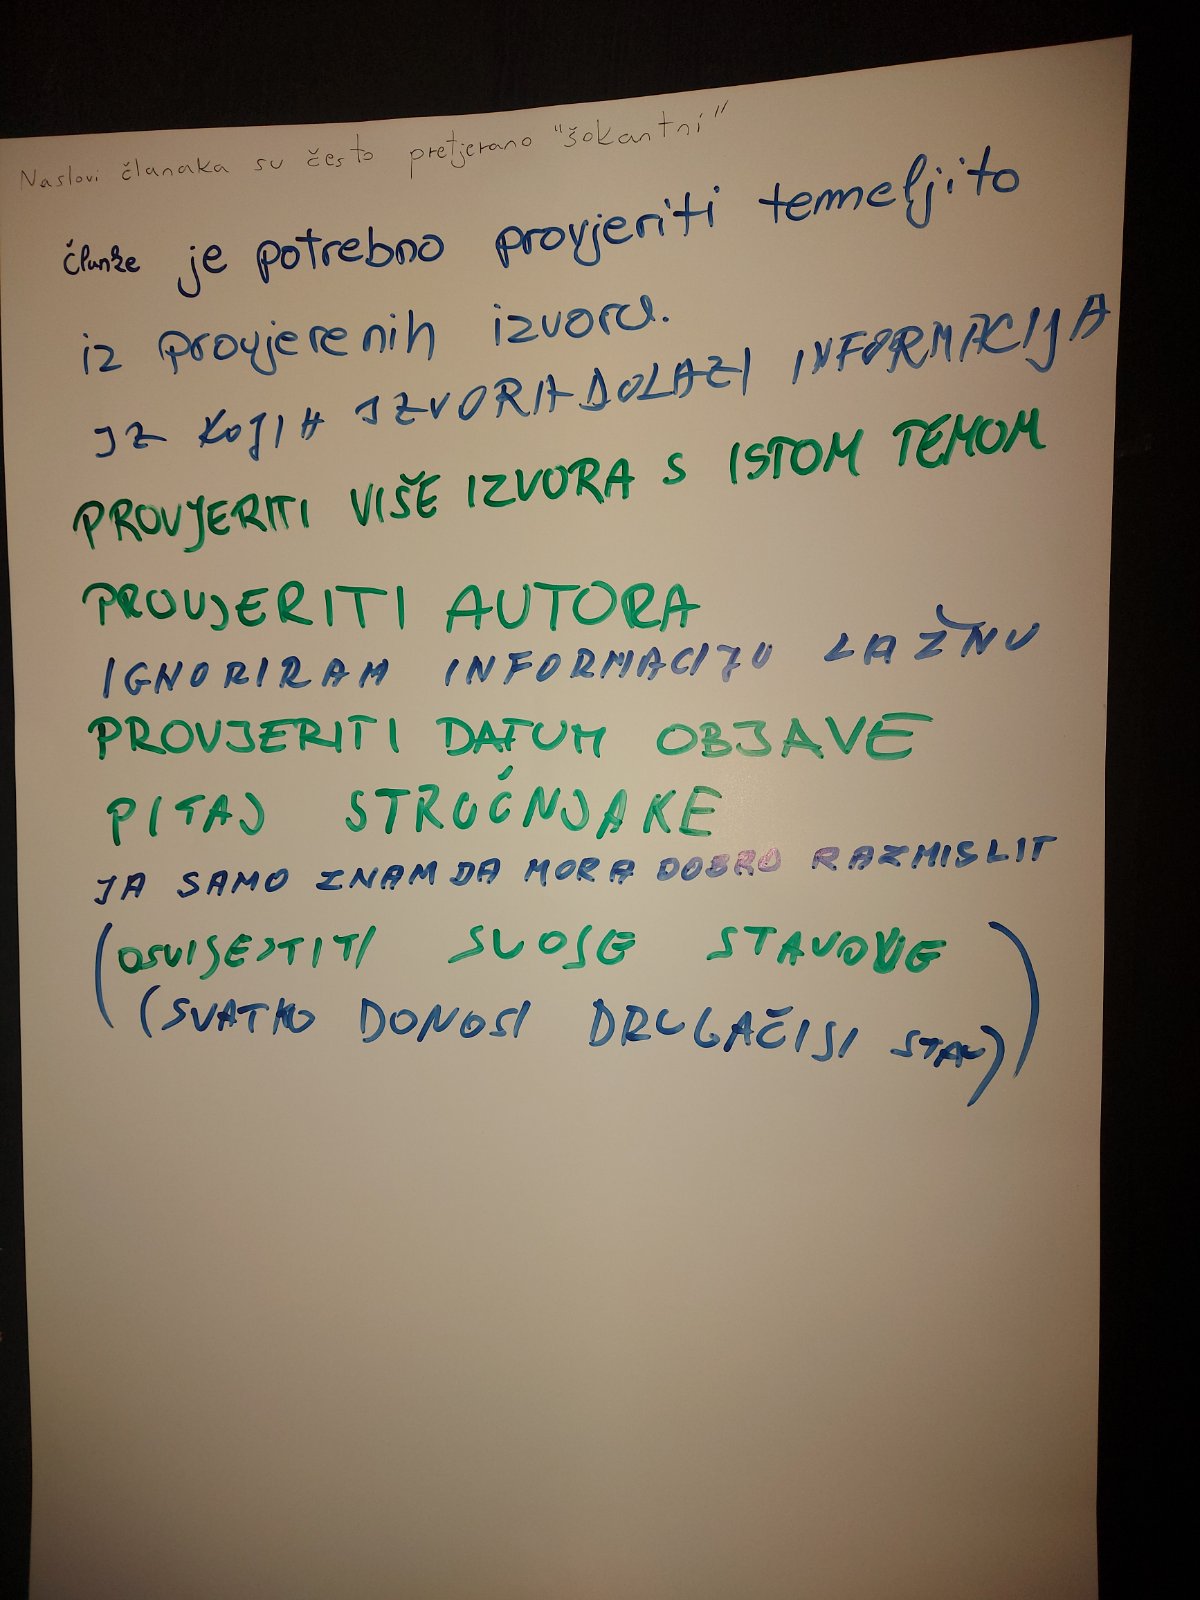 Naslovi članaka su često pretjerano "šokantni"
članke je potrebno provjeriti temeljito
iz provjerenih izvora.
IZ KOJIH IZVORA DOLAZI INFORMACIJA
PROVJERITI VIŠE IZVORA S ISTOM TEMOM
PROVJERITI AUTORA
IGNORIRAM INFORMACIJU LAŽNU
PROVJERITI DATUM OBJAVE
PITAJ STRUĆNJAKE
JA SAMO ZNAM DA MORA DOBRO RAZMISLIT
(OSVIJESTITI SVOJE STAVOVE
(SVATKO DONOSI DRUGAČIJI STAV))